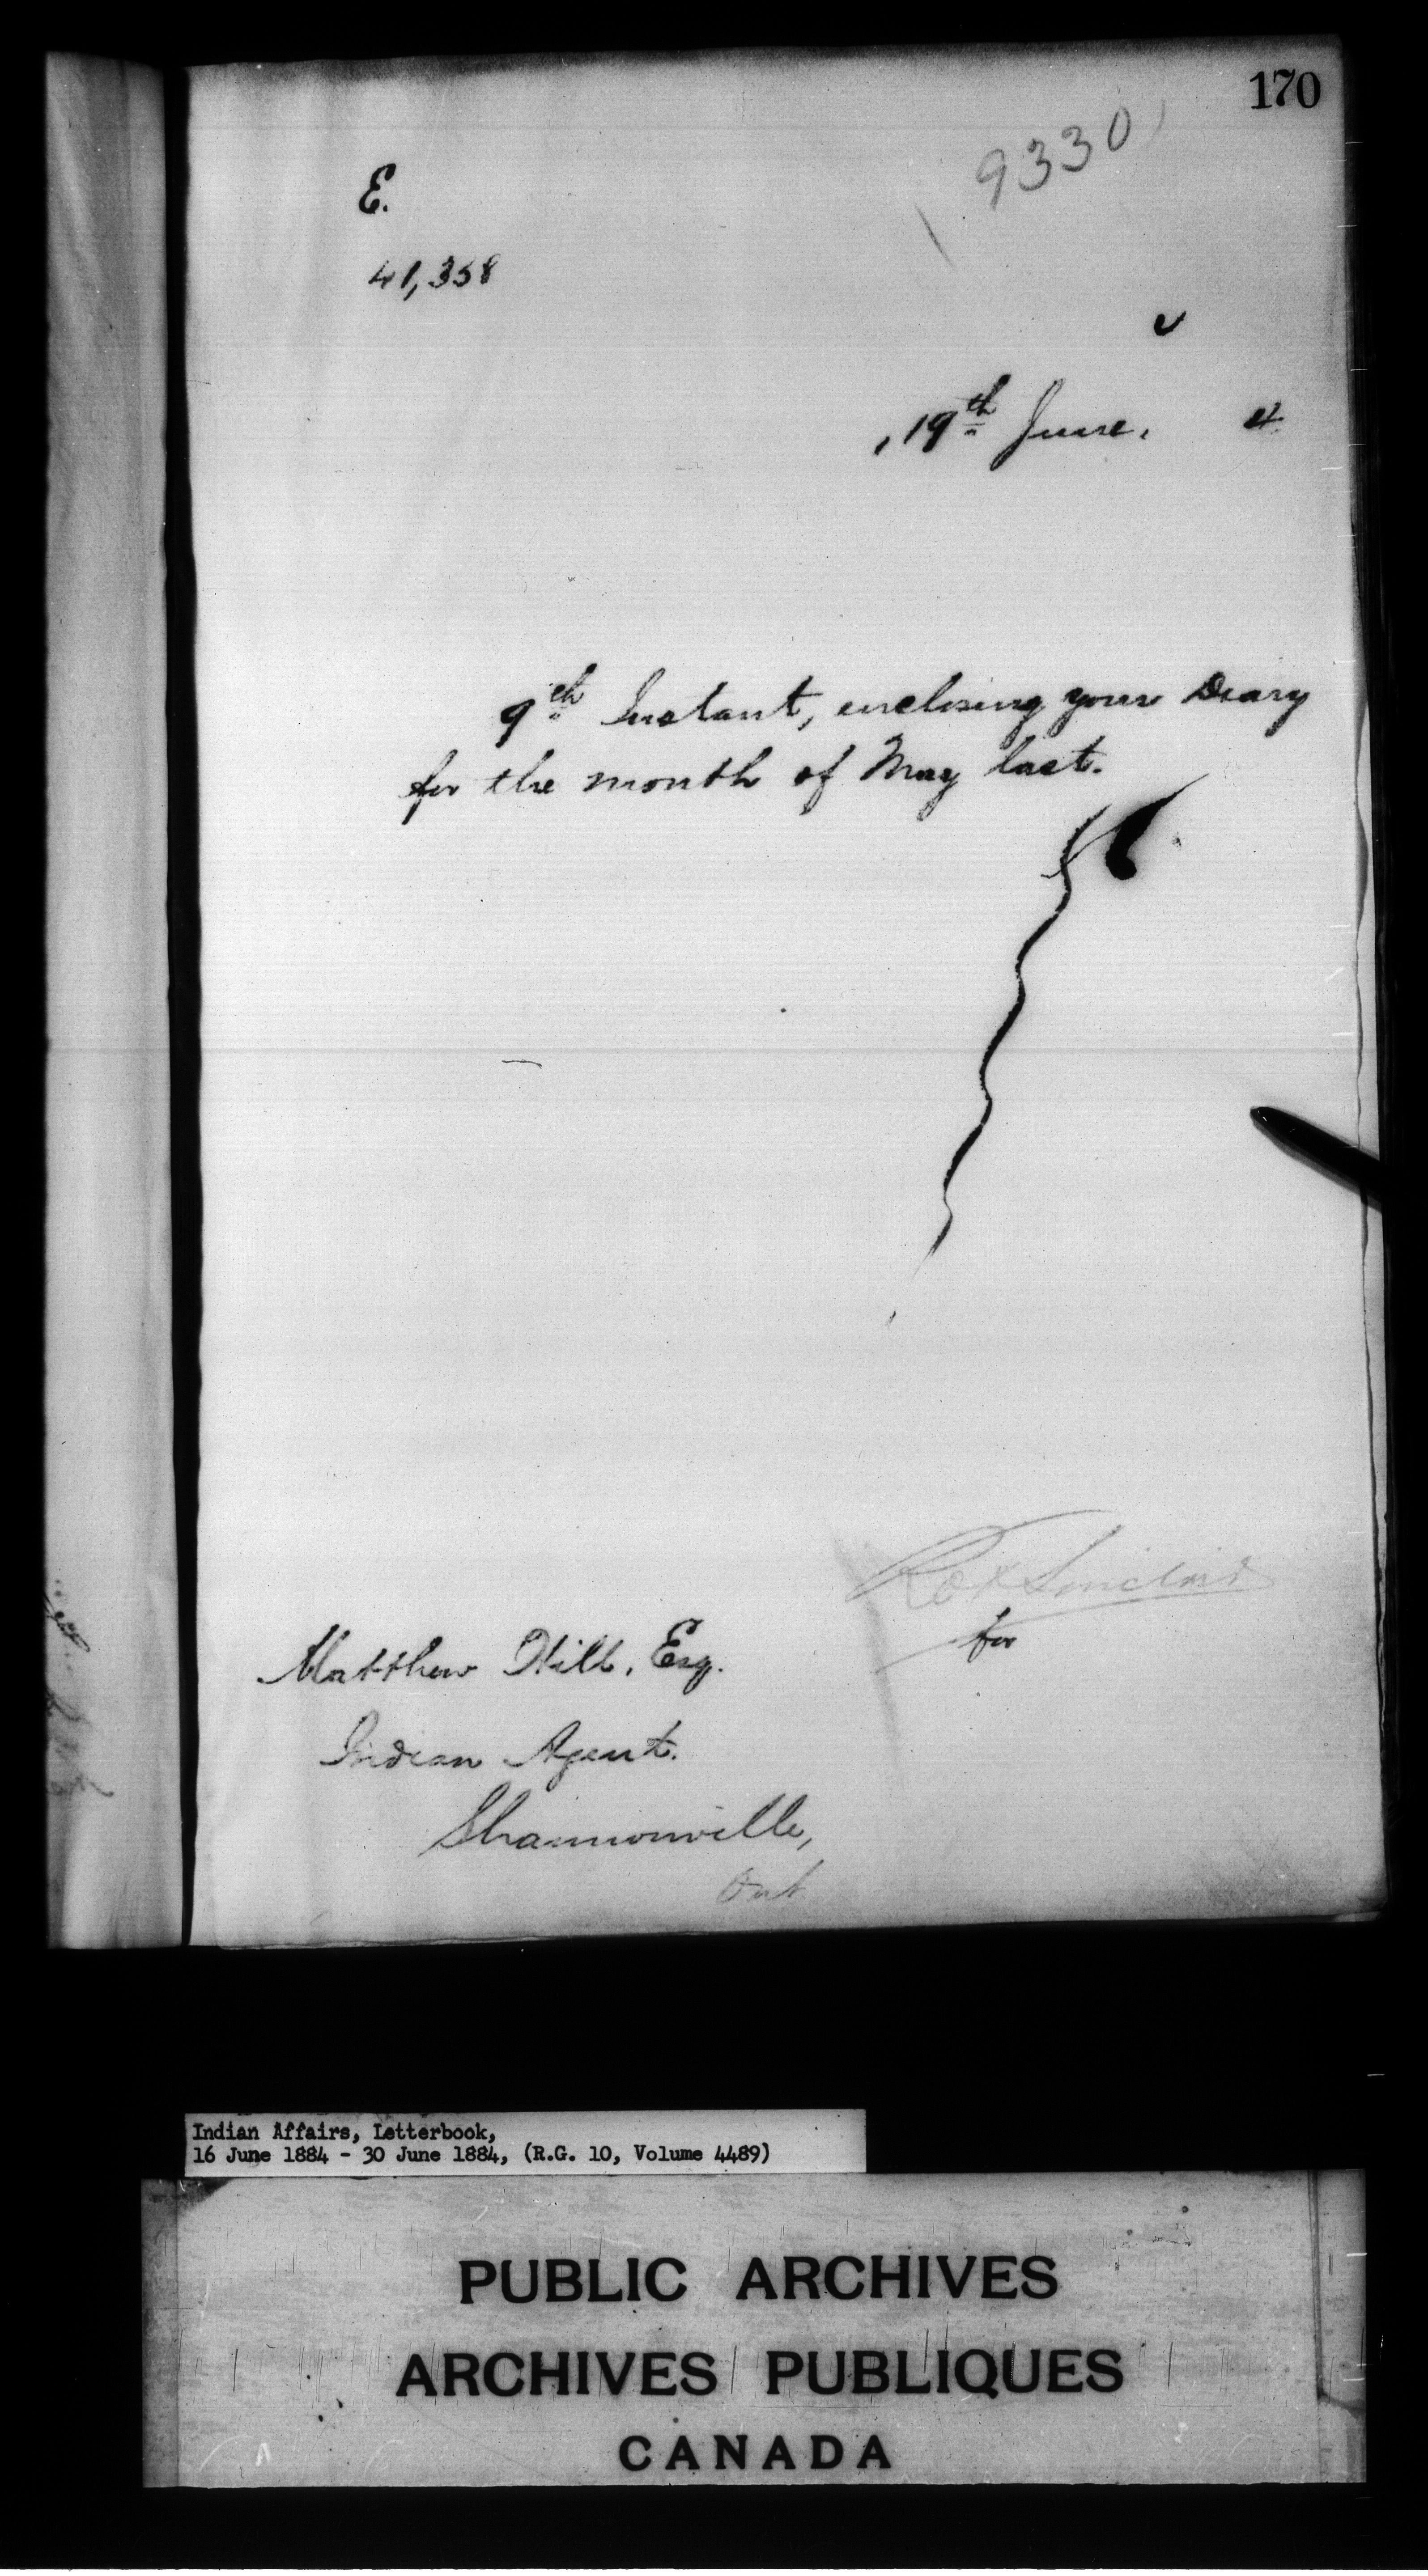 170
9330
E.
41,358
19th June, 4
9th Instant, enclosing your Diary
for the month of May last.
Sinclair
for
Matthew Hill, Esq.
Indian Agent.
Shannonville,
Ont
Indian Affairs, Letterbook,
16 June 1884 - 30 June 1884, (R.G. 10, Volume 4489)
PUBLIC ARCHIVES
ARCHIVES PUBLIQUES
CANADA